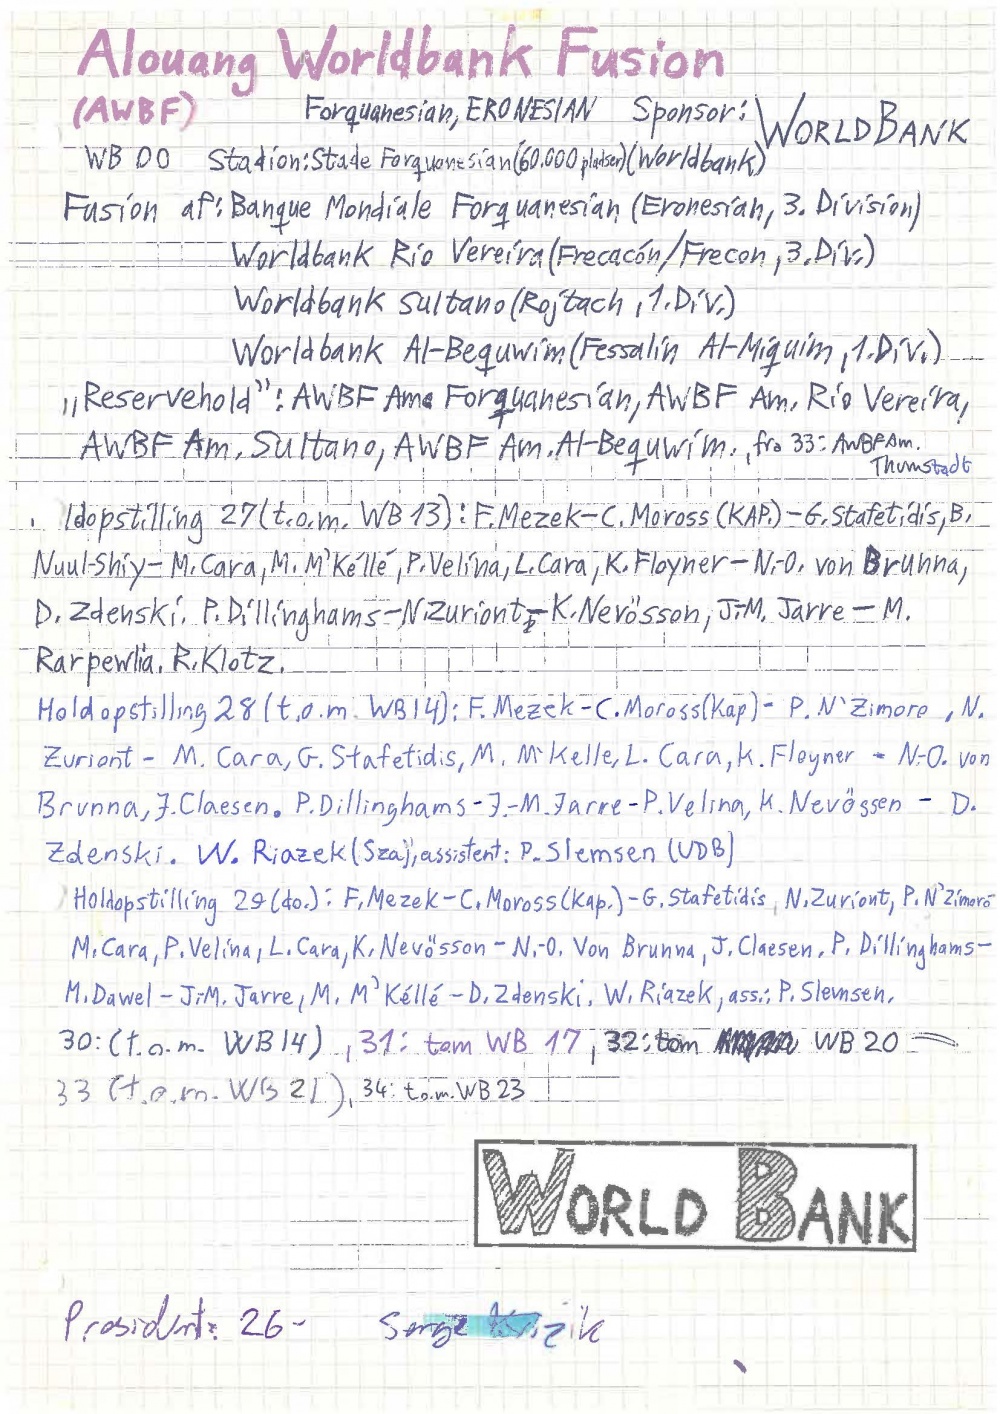 Alouang Worldbank Fusion
(AWBF) Forquanesian, ERONESIAN Sponsor: WORLDBANK
WB 00 Stadion: Stade Forquanesian (60.000 pladser) (Worldbank)
Fusion af: Banque Mondiale Forquanesian (Eronesian, 3. Division)
Worldbank Rio Vereira (Frecacón/Frecon, 3. Div.)
Worldbank Sultano (Rojtach, 1. Div.)
Worldbank Al-Bequwim (Fessalin Al-Miquim, 1. Div.)
„Reservehold”: AWBF Am. Forquanesian, AWBF Am. Rio Vereira,
AWBF Am. Sultano, AWBF Am. Al-Bequwim., fra 33: AWBF Am.
Thumstadt
ldopstilling 27 (t.o.m. WB 13): F. Mezek - C. Moross (KAP.) - G. Stafetidis, B.
Nuul-Shiy - M. Cara, M. M'Kéllé, P. Velina, L. Cara, K. Floyner - N.-O. von Brunna,
D. Zdenski. P. Dillinghams - N. Zuriont - K. Nevösson, J.-M. Jarre - M.
Rarpewlia. R. Klotz.
Holdopstilling 28 (t.o.m. WB14): F. Mezek - C. Moross (Kap) - P. N'Zimoro, N.
Zuriont - M. Cara, G. Stafetidis, M. M'Kelle, L. Cara, K. Floyner - N-O. von
Brunna, J. Claesen. P. Dillinghams - J.-M. Jarre - P. Velina, K. Nevössen - D.
Zdenski. W. Riazek (Sza), assistent: P. Slemsen (UDB)
Holdopstilling 29 (do.): F. Mezek - C. Moross (Kap.) - G. Stafetidis, N. Zuriont, P. N'Zimoro
M. Cara, P. Velina, L. Cara, K. Nevösson - N.-O. Von Brunna, J. Claesen. P. Dillinghams -
M. Dawel - J.-M. Jarre, M. M'Kéllé - D. Zdenski. W. Riazek, ass.: P. Slemsen.
30: (t.o.m. WB14), 31: tom WB 17, 32: tom WB 20
33 (t.o.m. WB 21), 34: t.o.m. WB 23
WORLD BANK
Præsident: 26- Serge